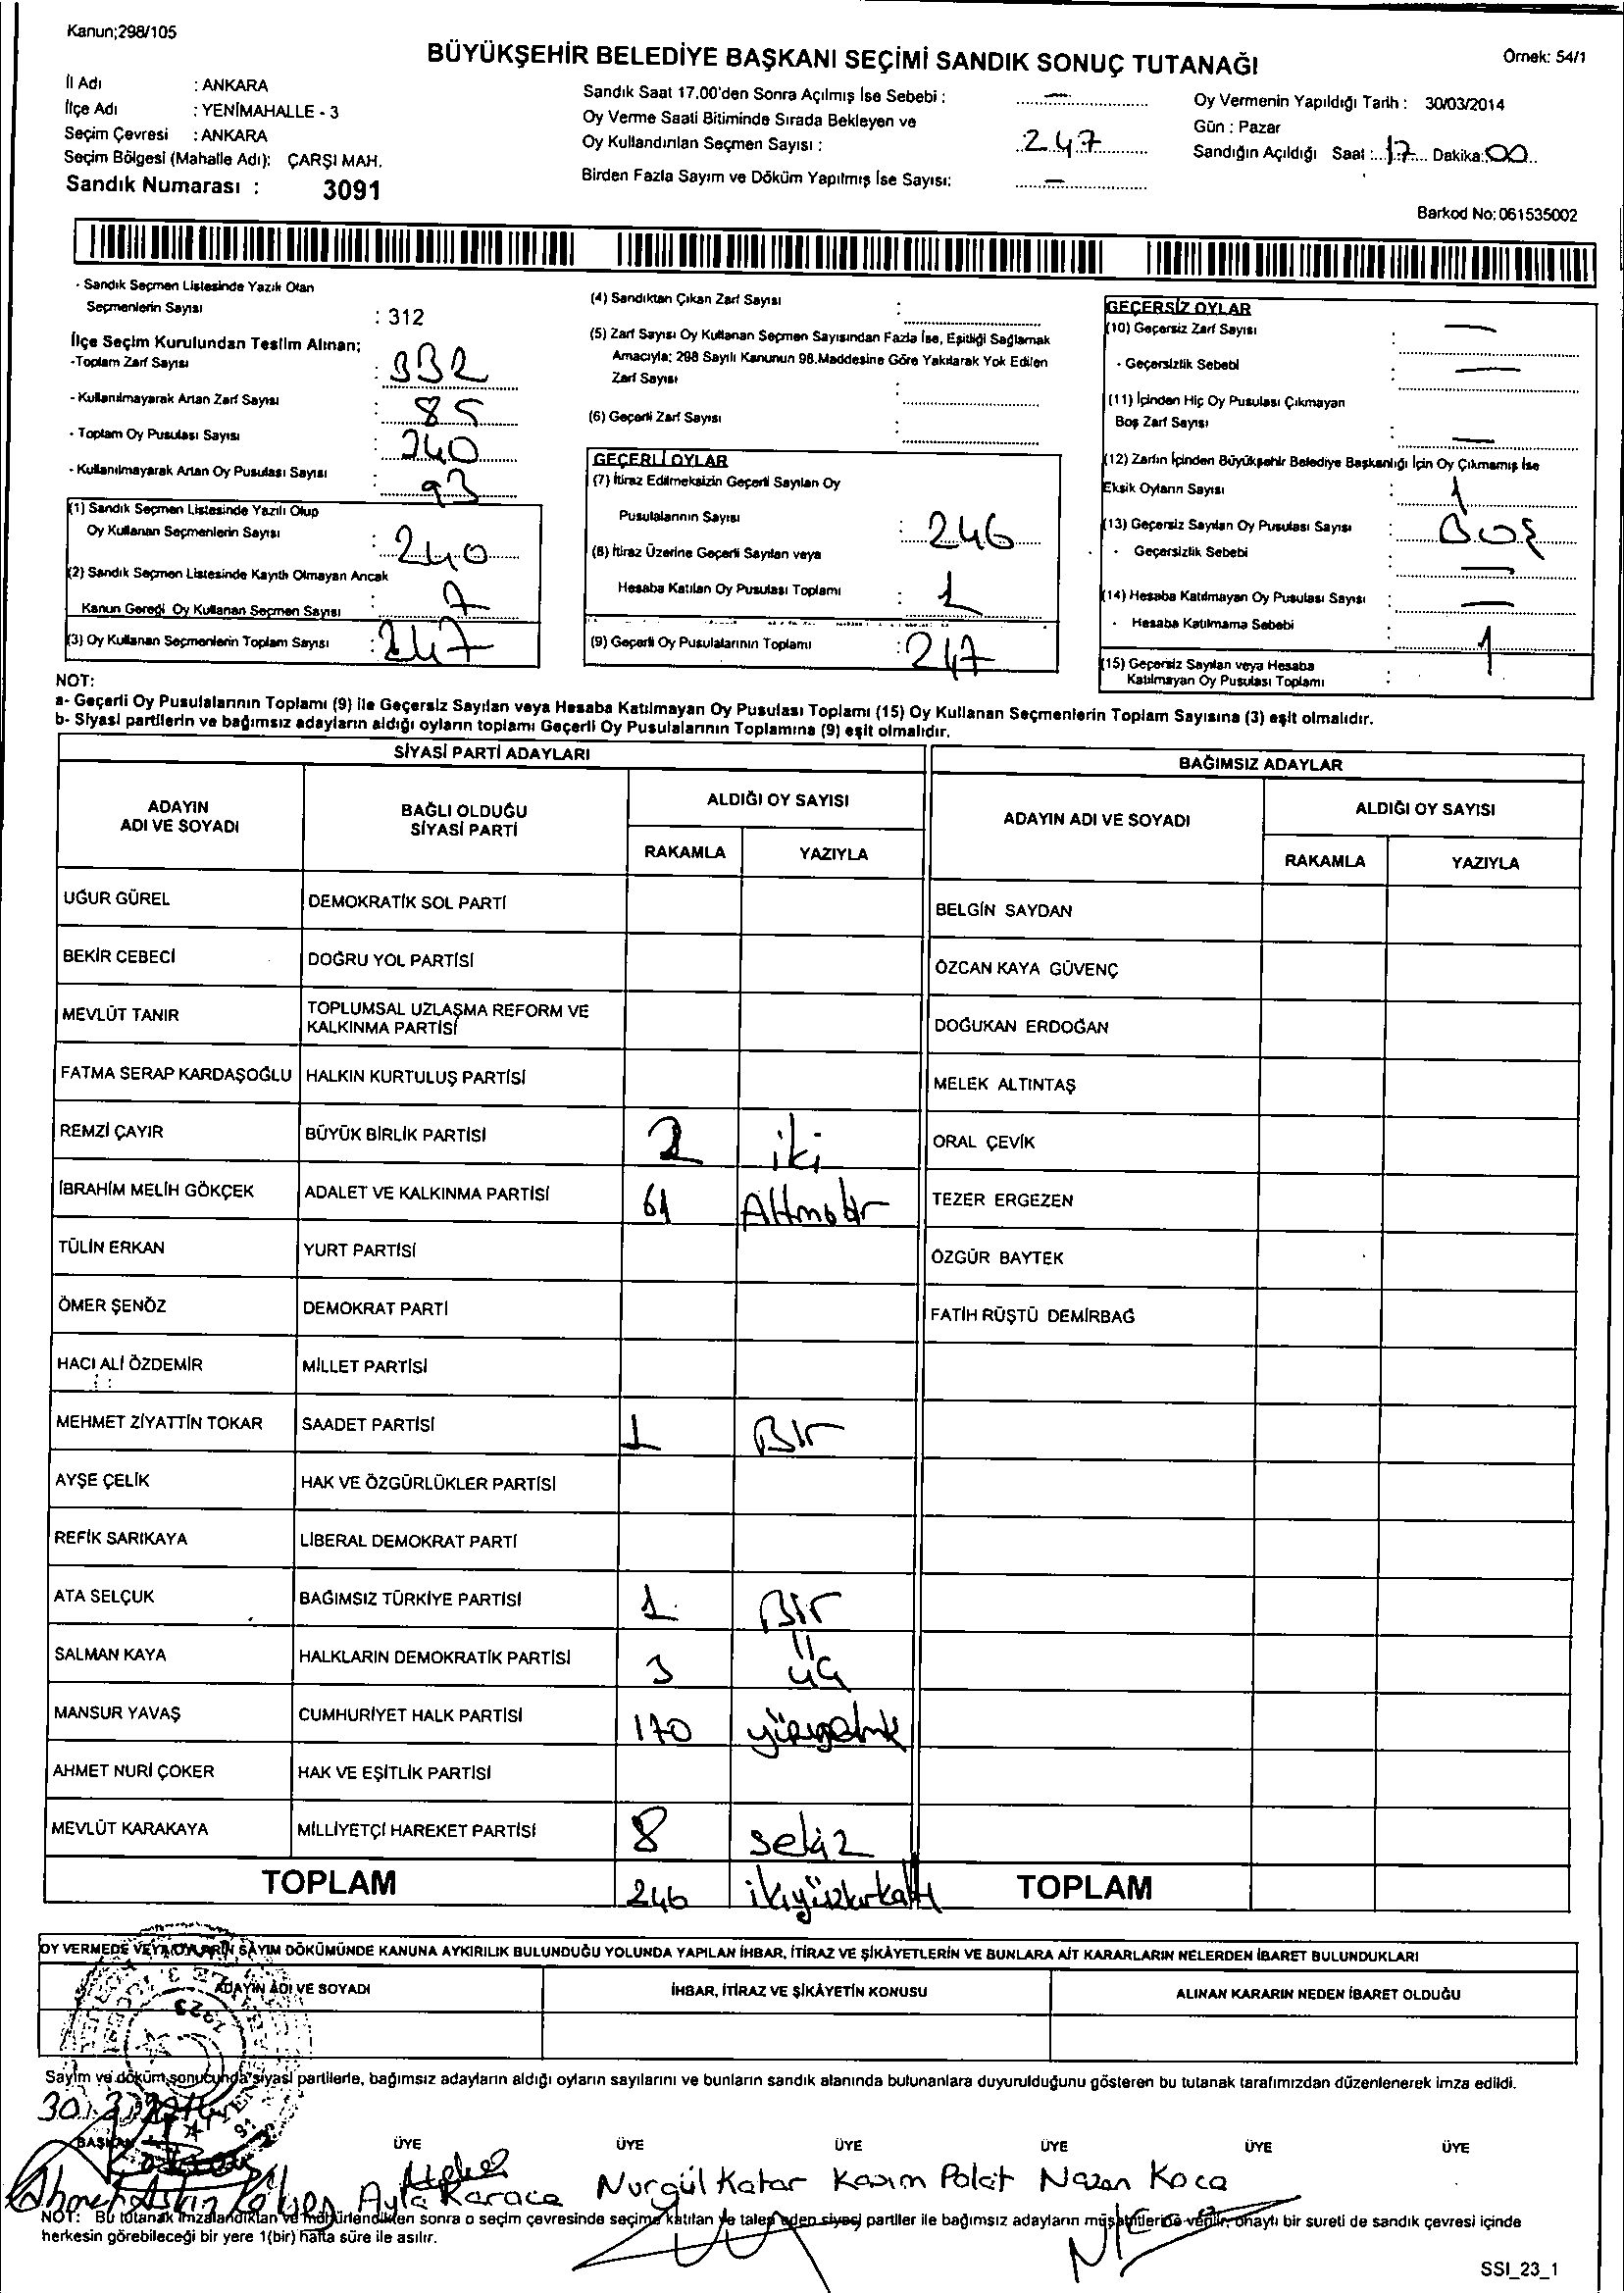 Kanun;298/105
BÜYÜKŞEHİR BELEDİYE BAŞKANI SEÇİMİ SANDIK SONUÇ TUTANAĞI
Örnek: 54/1
İl Adı : ANKARA
İlçe Adı : YENİMAHALLE - 3
Seçim Çevresi : ANKARA
Seçim Bölgesi (Mahalle Adı): ÇARŞI MAH.
Sandık Numarası : 3091
Sandık Saat 17.00'den Sonra Açılmış İse Sebebi : —
Oy Verme Saati Bitiminde Sırada Bekleyen ve
Oy Kullandırılan Seçmen Sayısı : 247
Birden Fazla Sayım ve Döküm Yapılmış İse Sayısı: —
Oy Vermenin Yapıldığı Tarih : 30/03/2014
Gün : Pazar
Sandığın Açıldığı Saat :...17... Dakika:00..
Barkod No: 061535002
- Sandık Seçmen Listesinde Yazılı Olan
Seçmenlerin Sayısı : 312
İlçe Seçim Kurulundan Teslim Alınan;
-Toplam Zarf Sayısı : 332
- Kullanılmayarak Artan Zarf Sayısı : 85
- Toplam Oy Pusulası Sayısı : 340
- Kullanılmayarak Artan Oy Pusulası Sayısı : 93
(1) Sandık Seçmen Listesinde Yazılı Olup
Oy Kullanan Seçmenlerin Sayısı : 240
(2) Sandık Seçmen Listesinde Kayıtlı Olmayan Ancak
Kanun Gereği Oy Kullanan Seçmen Sayısı : 7
(3) Oy Kullanan Seçmenlerin Toplam Sayısı : 247
(4) Sandıktan Çıkan Zarf Sayısı :
(5) Zarf Sayısı Oy Kullanan Seçmen Sayısından Fazla İse, Eşitliği Sağlamak
Amacıyla; 298 Sayılı Kanunun 98.Maddesine Göre Yakılarak Yok Edilen
Zarf Sayısı :
(6) Geçerli Zarf Sayısı :
GEÇERLİ OYLAR
(7) İtiraz Edilmeksizin Geçerli Sayılan Oy
Pusulalarının Sayısı : 246
(8) İtiraz Üzerine Geçerli Sayılan veya
Hesaba Katılan Oy Pusulası Toplamı : 1
(9) Geçerli Oy Pusulalarının Toplamı : 247
GEÇERSİZ OYLAR
(10) Geçersiz Zarf Sayısı : —
- Geçersizlik Sebebi : —
(11) İçinden Hiç Oy Pusulası Çıkmayan
Boş Zarf Sayısı : —
(12) Zarfın İçinden Büyükşehir Belediye Başkanlığı İçin Oy Çıkmamış İse
Eksik Oyların Sayısı : 1
(13) Geçersiz Sayılan Oy Pusulası Sayısı : BOŞ
- Geçersizlik Sebebi : —
(14) Hesaba Katılmayan Oy Pusulası Sayısı : —
- Hesaba Katılmama Sebebi : 1
(15) Geçersiz Sayılan veya Hesaba
Katılmayan Oy Pusulası Toplamı :
NOT:
a- Geçerli Oy Pusulalarının Toplamı (9) ile Geçersiz Sayılan veya Hesaba Katılmayan Oy Pusulası Toplamı (15) Oy Kullanan Seçmenlerin Toplam Sayısına (3) eşit olmalıdır.
b- Siyasi partilerin ve bağımsız adayların aldığı oyların toplamı Geçerli Oy Pusulalarının Toplamına (9) eşit olmalıdır.
SİYASİ PARTİ ADAYLARI
BAĞIMSIZ ADAYLAR
ADAYIN ADI VE SOYADI
BAĞLI OLDUĞU SİYASİ PARTİ
ALDIĞI OY SAYISI
RAKAMLA YAZIYLA
ADAYIN ADI VE SOYADI
ALDIĞI OY SAYISI
RAKAMLA YAZIYLA
UĞUR GÜREL DEMOKRATİK SOL PARTİ BELGİN SAYDAN
BEKİR CEBECİ DOĞRU YOL PARTİSİ ÖZCAN KAYA GÜVENÇ
MEVLÜT TANIR TOPLUMSAL UZLAŞMA REFORM VE KALKINMA PARTİSİ DOĞUKAN ERDOĞAN
FATMA SERAP KARDAŞOĞLU HALKIN KURTULUŞ PARTİSİ MELEK ALTINTAŞ
REMZİ ÇAYIR BÜYÜK BİRLİK PARTİSİ 2 iki ORAL ÇEVİK
İBRAHİM MELİH GÖKÇEK ADALET VE KALKINMA PARTİSİ 61 Altmışbir TEZER ERGEZEN
TÜLİN ERKAN YURT PARTİSİ ÖZGÜR BAYTEK
ÖMER ŞENÖZ DEMOKRAT PARTİ FATİH RÜŞTÜ DEMİRBAĞ
HACI ALİ ÖZDEMİR MİLLET PARTİSİ
MEHMET ZİYATTİN TOKAR SAADET PARTİSİ 1 Bir
AYŞE ÇELİK HAK VE ÖZGÜRLÜKLER PARTİSİ
REFİK SARIKAYA LİBERAL DEMOKRAT PARTİ
ATA SELÇUK BAĞIMSIZ TÜRKİYE PARTİSİ 1 Bir
SALMAN KAYA HALKLARIN DEMOKRATİK PARTİSİ 3 üç
MANSUR YAVAŞ CUMHURİYET HALK PARTİSİ 170 yüzyetmiş
AHMET NURİ ÇOKER HAK VE EŞİTLİK PARTİSİ
MEVLÜT KARAKAYA MİLLİYETÇİ HAREKET PARTİSİ 8 sekiz
TOPLAM 246 ikiyüzkırkaltı TOPLAM
OY VERMEDE VEYA OYLARIN SAYIM DÖKÜMÜNDE KANUNA AYKIRILIK BULUNDUĞU YOLUNDA YAPILAN İHBAR, İTİRAZ VE ŞİKÂYETLERİN VE BUNLARA AİT KARARLARIN NELERDEN İBARET BULUNDUKLARI
ADAYIN ADI VE SOYADI İHBAR, İTİRAZ VE ŞİKÂYETİN KONUSU ALINAN KARARIN NEDEN İBARET OLDUĞU
Sayım ve döküm sonucunda siyasi partilerle, bağımsız adayların aldığı oyların sayılarını ve bunların sandık alanında bulunanlara duyurulduğunu gösteren bu tutanak tarafımızdan düzenlenerek imza edildi.
BAŞKAN ÜYE ÜYE ÜYE ÜYE ÜYE ÜYE
Ayla Karaca Nurgül Katar Kasım Polat Nazan Koca
NOT: Bu tutanak imzalandıktan ve mühürlendikten sonra o seçim çevresinde seçime katılan ve talep eden siyasi partiler ile bağımsız adayların müşahitlerine verilir, onaylı bir sureti de sandık çevresi içinde
herkesin görebileceği bir yere 1(bir) hafta süre ile asılır.
SSI_23_1